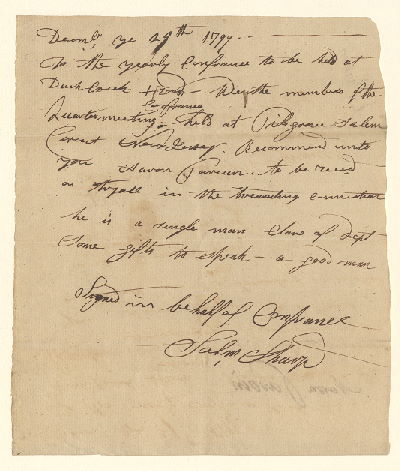 Decemb. ye 29th 1799
To the yearly Confrance to be held at
Duck Creek – We the members of the
Quartermeeting Confrance held at Pittsgrove Salem
Circuit New Jersey. Recommend unto
you to be received
on tryall in the travelling connection
he is a single man Clear of Dept
Some gifts to speak – a good man
Signed in behalf of Confrance
Sharp